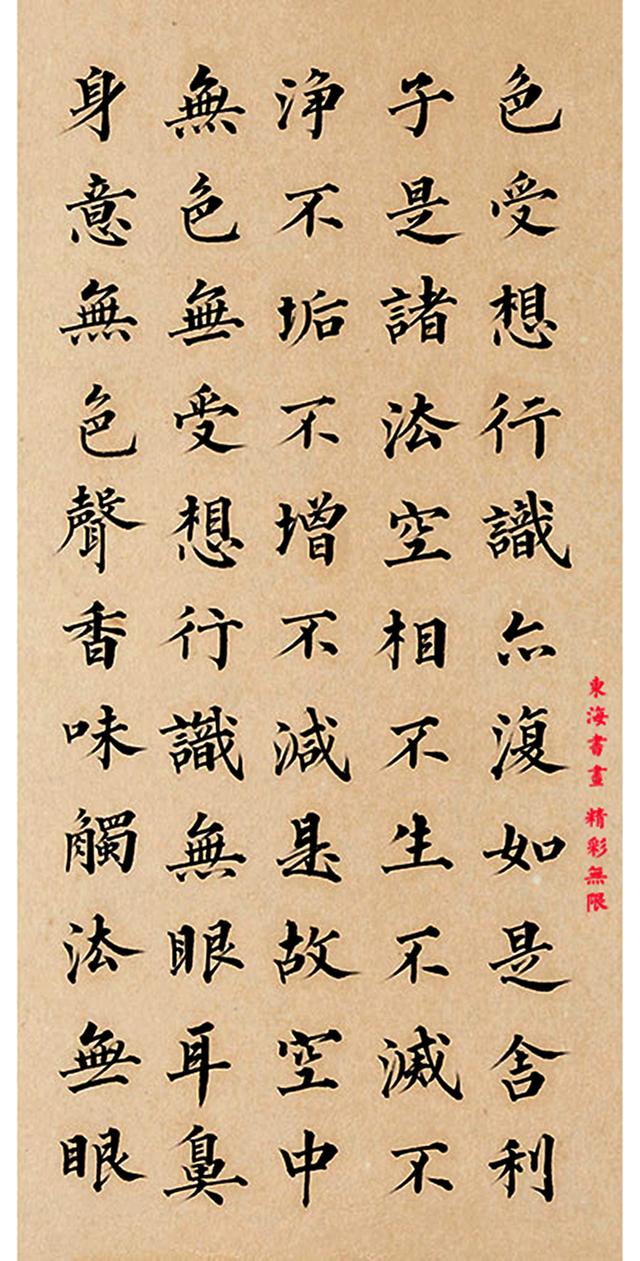 色受想行識亦復如是舍利
子是諸法空相不生不滅不
浄不垢不增不減是故空中
無色無受想行識無眼耳鼻
身意無色聲香味觸法無眼
東海書畫 精彩無限